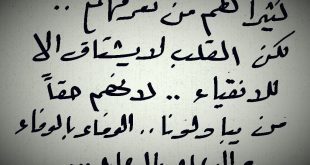 كثيرا هم من نعرفهم ..
لكن القلب لا يشتاق إلا
للانقياء .. لانهم حقاً
من يبادلونا .. الوفاء بالوفاء